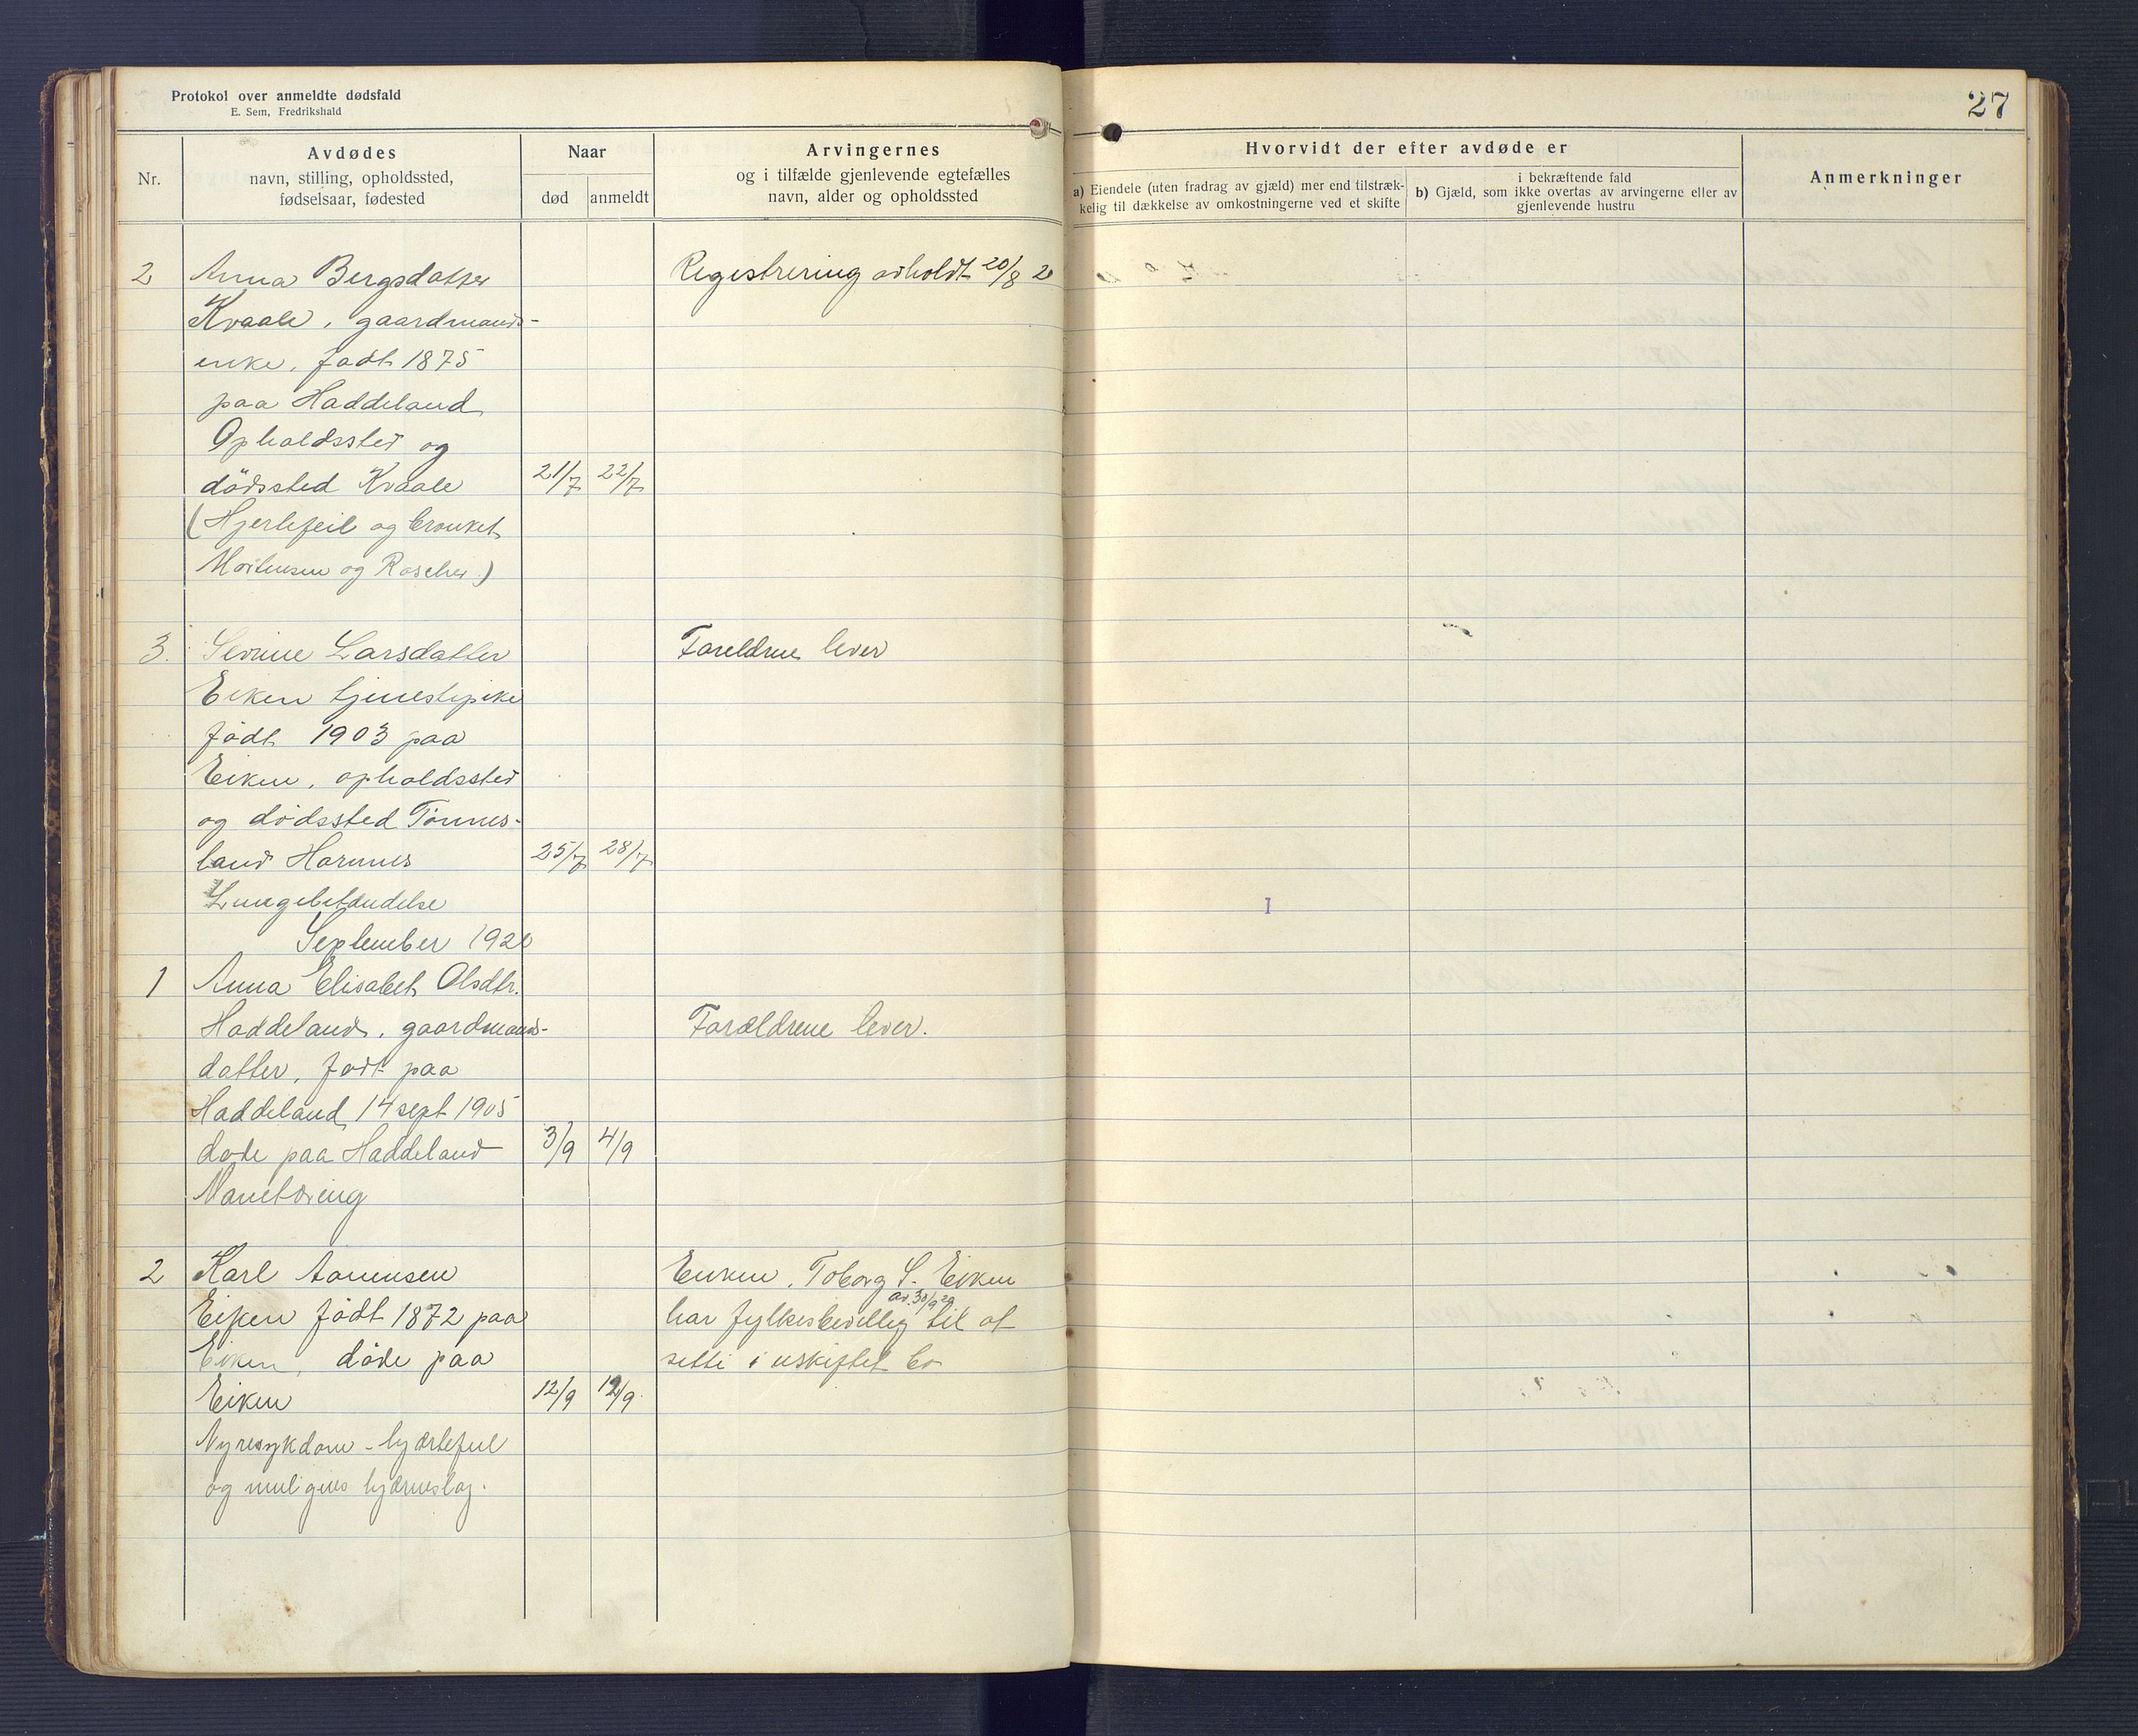 Protokol over anmeldte dødsfald
E. Sem, Fredrikshald
27
Nr.
Avdødes
navn, stilling, opholdssted,
fødselsaar, fødested
Naar
død
anmeldt
Arvingernes
og i tilfælde gjenlevende egtefælles
navn, alder og opholdssted
Hvorvidt der efter avdøde er
a) Eiendele (uten fradrag av gjæld) mer end tilstræk-
kelig til dækkelse av omkostningerne ved et skifte
i bekræftende fald
b) Gjæld, som ikke overtas av arvingerne eller av
gjenlevende hustru
Anmerkninger
2 Anna Bergsdatter Registrering avholdt 20/8 20
Kvaale, gaardmands-
enke, født 1875
paa Haddeland
Opholdssted og
dödssted Kvaale 21/7 22/7
(Hjertefeil og
Mortensen og Roscher.)
3. Sevrine Larsdatter Foreldrene lever
Eiken tjenestepike
født 1903 paa
Eiken, opholdssted
og dödssted Tønnes-
land Hornnes 25/7 28/7
Lungebetændelse
September 1920
1 Anna Elisabet Olsdtr.
Haddeland, gaardmands- Forældrene lever.
datter, født paa
Haddeland 14 sept 1905
døde paa Haddeland 3/9 4/9
2 Karl Aanensen Enken, Toborg S. Eiken
av 30/9 20
Eiken født 1872 paa har fylkesbevilling til at
Eiken, døde paa sitte i uskiftet bo
Eiken 12/9 12/9.
Nyresykdom - hjærtefeil
og muligens hjærneslag.